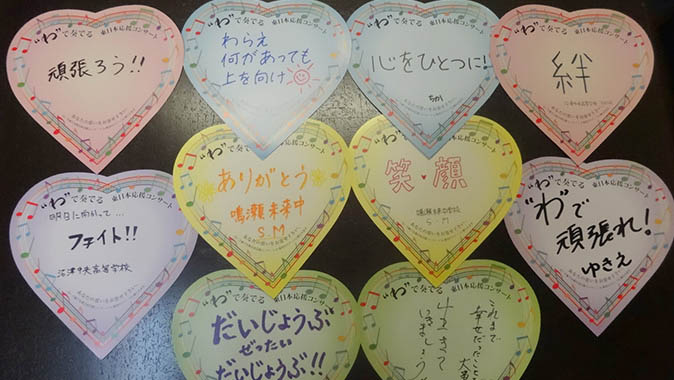 “わ”で奏でる 東日本応援コンサート
頑張ろう!!
“わ”で奏でる 東日本応援コンサート
わらえ
何があっても
上を向け
“わ”で奏でる 東日本応援コンサート
心をひとつに!
“わ”で奏でる 東日本応援コンサート
絆
“わ”で奏でる 東日本応援コンサート
明日に向かって…
ファイト!!
沼津中央高等学校
“わ”で奏でる 東日本応援コンサート
ありがとう
鳴瀬未来中
S.M
“わ”で奏でる 東日本応援コンサート
笑顔
鳴瀬未来中学校
S.M
“わ”で奏でる 東日本応援コンサート
“わ”で
頑張れ!
ゆきえ
“わ”で奏でる 東日本応援コンサート
だいじょうぶ
ぜったい
だいじょうぶ!!
“わ”で奏でる 東日本応援コンサート
これまで
幸せだったこと
生きて
いきましょう